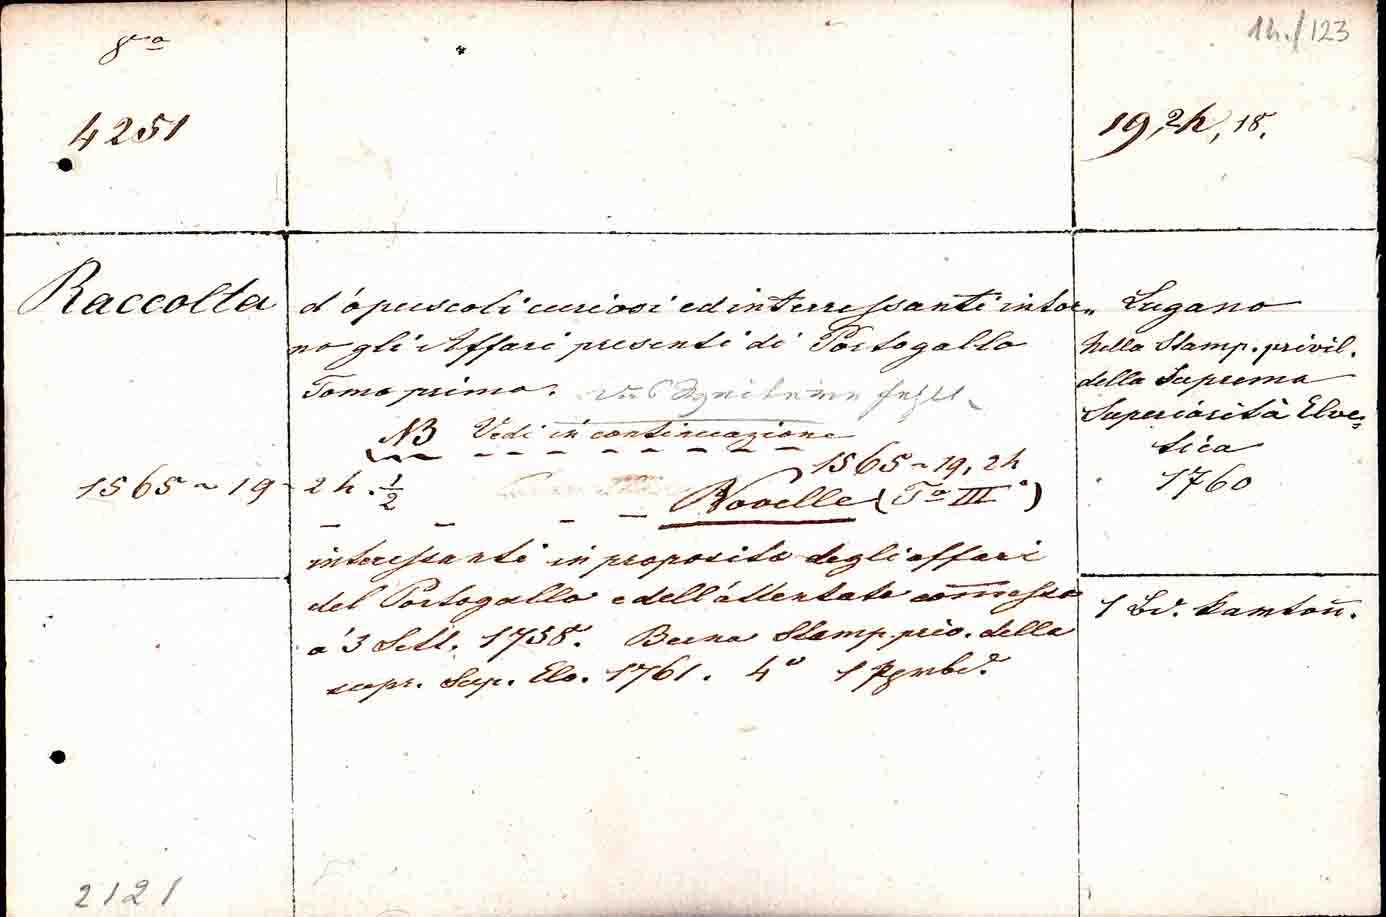 8vo
4251
19,2h, 18.
1h./123
Raccolta d'opuscoli curiosi ed interressanti intor=
no gli Affari presenti di Portogallo
Tomo primo.
NB Vedi in continuazione
1565~19, 2h
1565~19 2h. 1/2
Novelle (To III°)
interessanti in proposito degli affari
del Portogallo e dell'attentato com̅esso
a' 3 Sett. 1758. Berna Stamp. priv. della
supr. Sup. Elv. 1761. 4° 1 Pgmbd.
Lugano
Nella Stamp. privil.
della Suprema
Superiorità Elve=
tica
1760
1 Bd. kartoñ.
2121